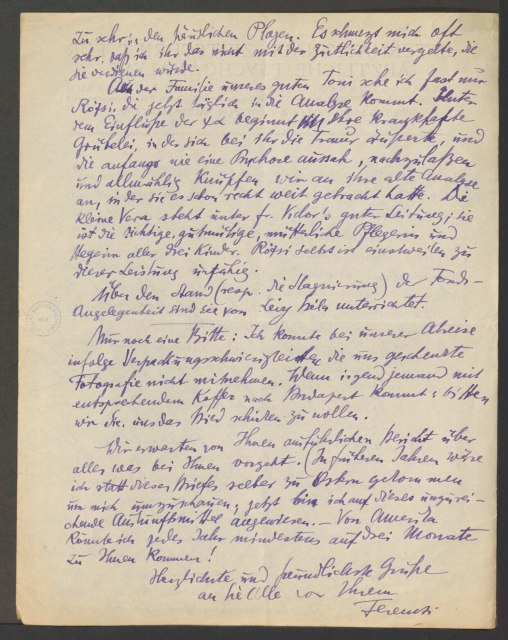 zu sehr in den häuslichen Plagen. Es schmerzt mich oft
sehr, daß ich ihr das nicht mit der Zärtlichkeit vergelte, die
sie verdienen würde.
Aus der Familie unseres guten Toni sehe ich fast nur
Rózsi, die jetzt täglich in die Analyse kommt. Unter
dem Einflusse der ψα beginnt ihre krankhafte
Grübelei, in der sich bei ihr die Trauer äußerte, und
die anfangs wie eine Psychose aussah, nachzulassen
und allmählig knüpfen wir an ihre alte Analyse
an, in der sie es schon recht weit gebracht hatte. Die
kleine Vera steht unter fr. Vidor's guter Leitung; sie
ist die richtige, gutmütige, mütterliche Pflegerin und
Hegerin aller drei Kinder. Rózsi selbst ist einstweilen zu
dieser Leistung unfähig.
Über den Stand (resp. die Stagnierung) der Fonds-
Angelegenheit sind Sie von Lévy Béla unterrichtet.
Nur noch eine Bitte: Ich konnte bei unserer Abreise
infolge Verpackungsschwierigkeiten die uns geschenkte
Fotografie nicht mitnehmen. Wenn irgend jemand mit
entsprechendem Koffer nach Budapest kommt: bitten
wir Sie, uns das Bild schicken zu wollen.
Wir erwarten von Ihnen ausführlichen Bericht über
alles was bei Ihnen vorgeht. (In früheren Jahren wäre
ich statt dieses Briefes selber zu Ostern gekommen
um mich umzuschauen; jetzt bin ich auf dieses unzurei-
chende Auskunftsmittel angewiesen. – Von Amerika
könnte ich jedes Jahr mindestens auf drei Monate
zu Ihnen kommen!
Herzlichste und freundlichste Grüße
an Sie Alle von Ihrem
Ferenczi